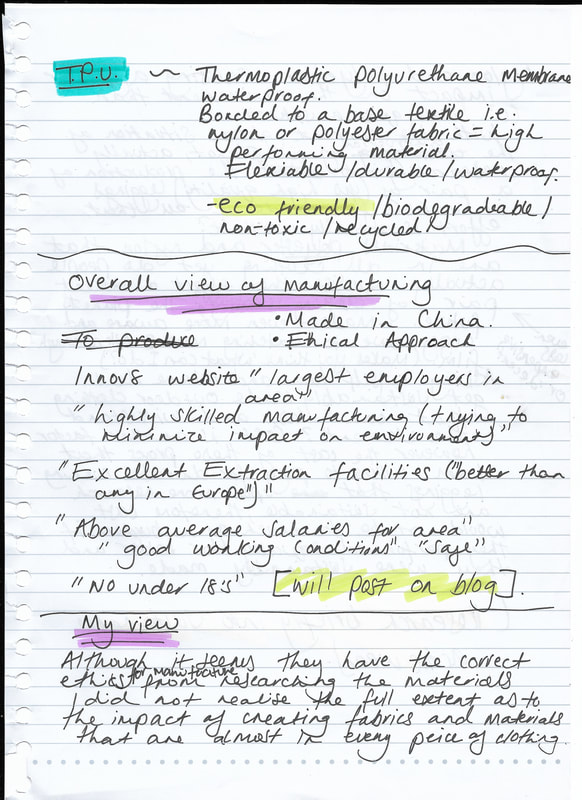 T.P.U. ~ Thermoplastic polyurethane Membrane
waterproof.
Bonded to a base textile i.e.
nylon or polyester fabric = high
performing material.
Flexiable / durable / waterproof.
- eco friendly / biodegradeable /
non-toxic / recycled
Overall view of manufacturing
• Made in China.
To produce • Ethical Approach
Innov8 website " largest employers in
area"
" highly skilled manufacturing (trying to
minimize impact on environment)"
"Excellent Extraction facilities ("better than
any in Europe")"
" Above average salaries for area"
" good working conditions" "safe"
"No under 18's" [will post on blog].
My view
Although it seems they have the correct
ethics for manufacture from researching the materials
I did not realise the full extent as to
the impact of creating fabrics and materials
that are almost in every peice of clothing.